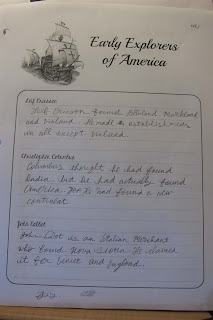 Early Explorers
of America
Leif Ericson
Leif Ericson found Helluland Markland
and Vinland. He made establishments
in all except Vinland.
Christopher Columbus
Columbus thought he had found
India but he had actually found
America. and found a new
continent.
John Cabot
John Cabot is an Italian Merchant
who found Nova Scotia. He claimed
it for and England.